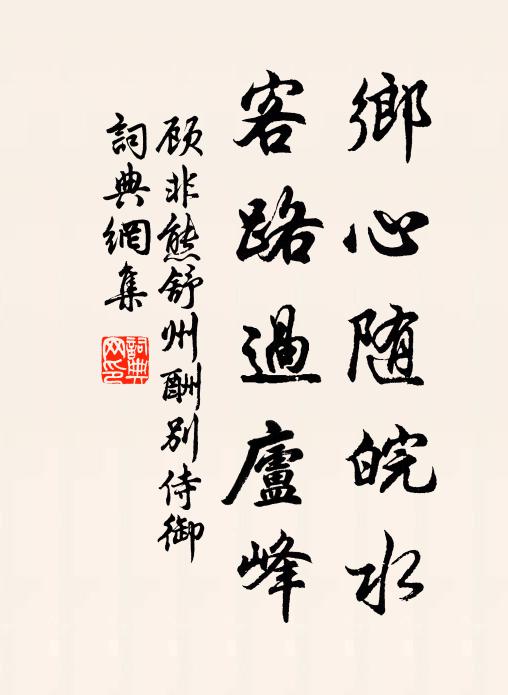 鄉心隨皖水
客路過廬峰
顾非熊舒州酬別侍御
詞典網集
詞典网印